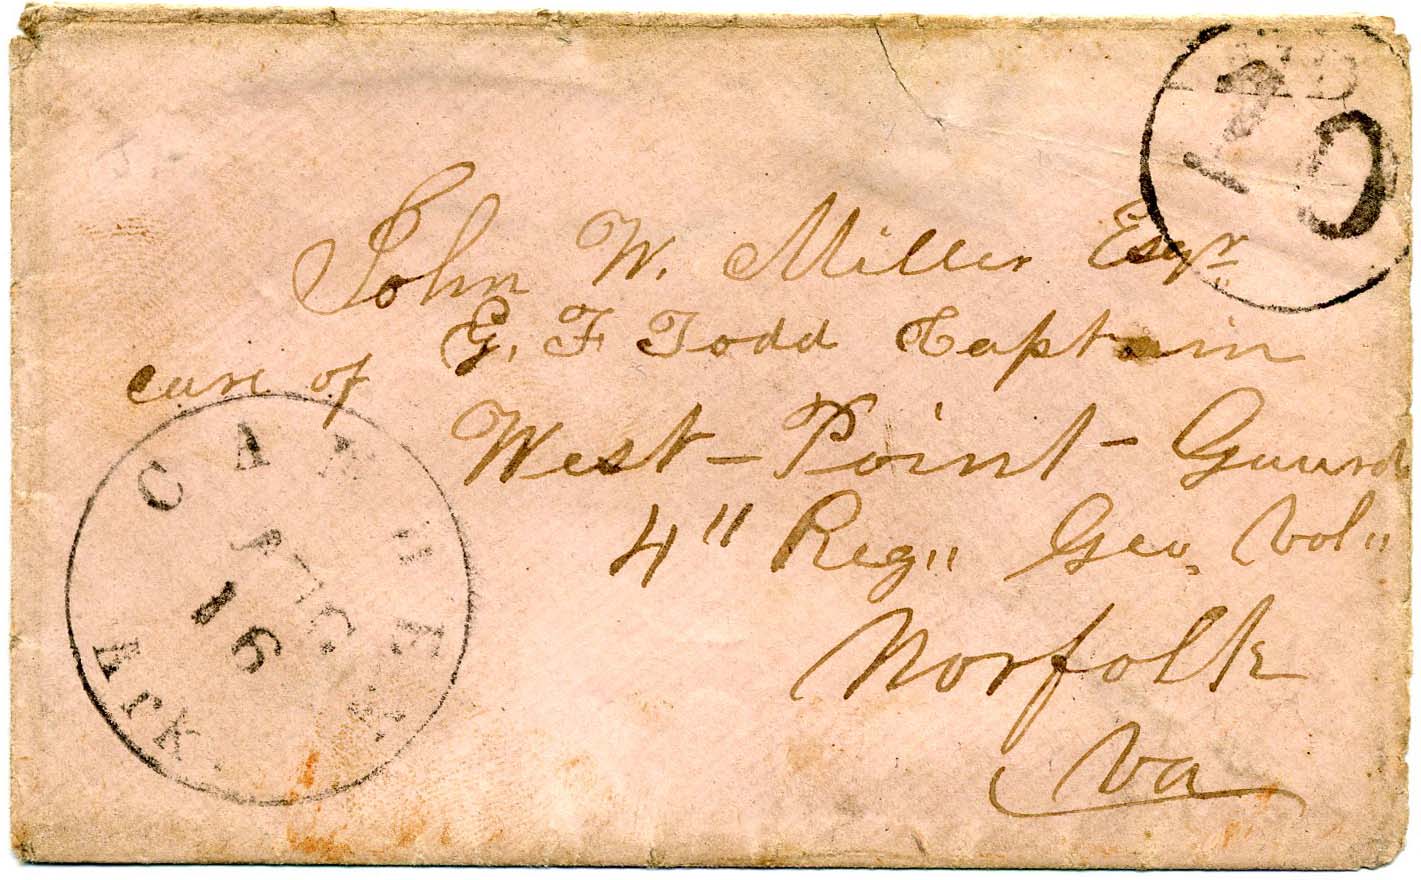 PAID
10
John W. Miller Esqr.
care of G. F Todd Captain
West-Point-Guard
4" Reg" Geo, Vol"
Norfolk
Va
CAMDEN
AUG
16
ARK.